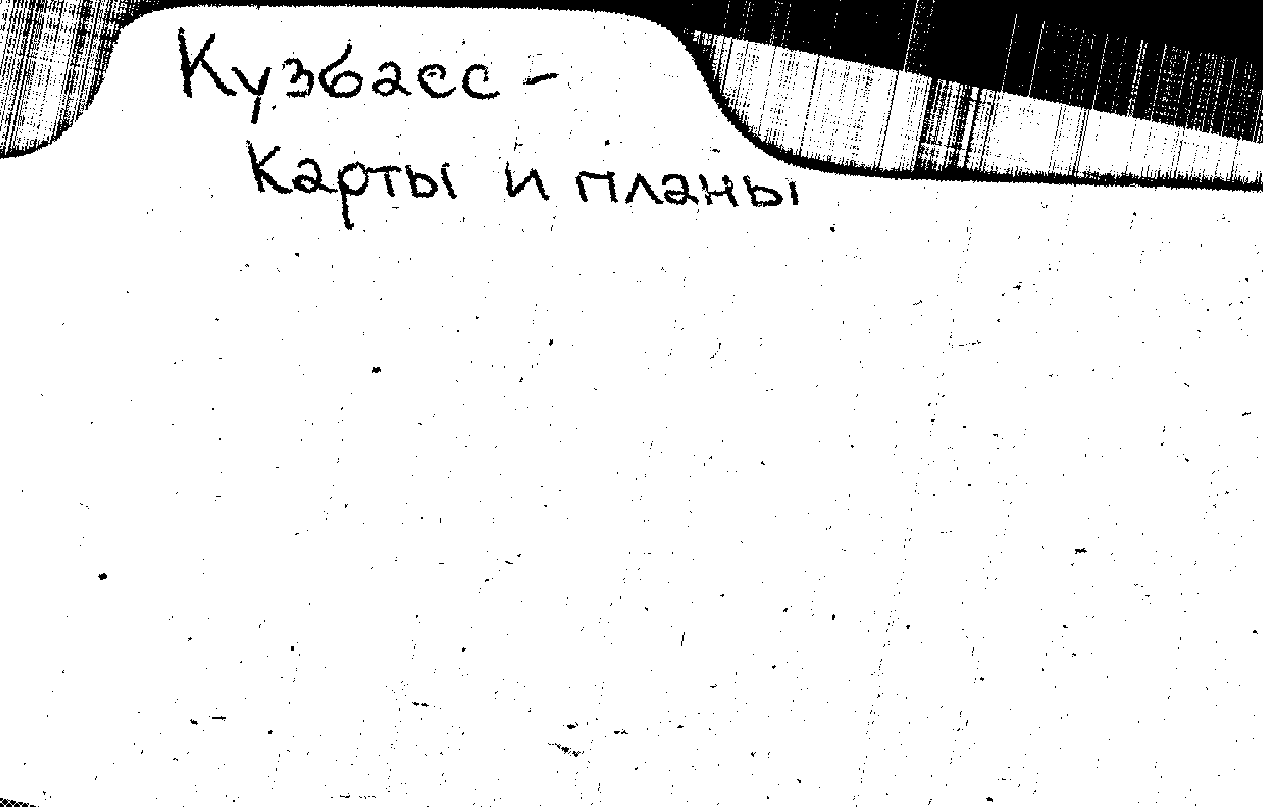 Кузбасс -
Карты и планы